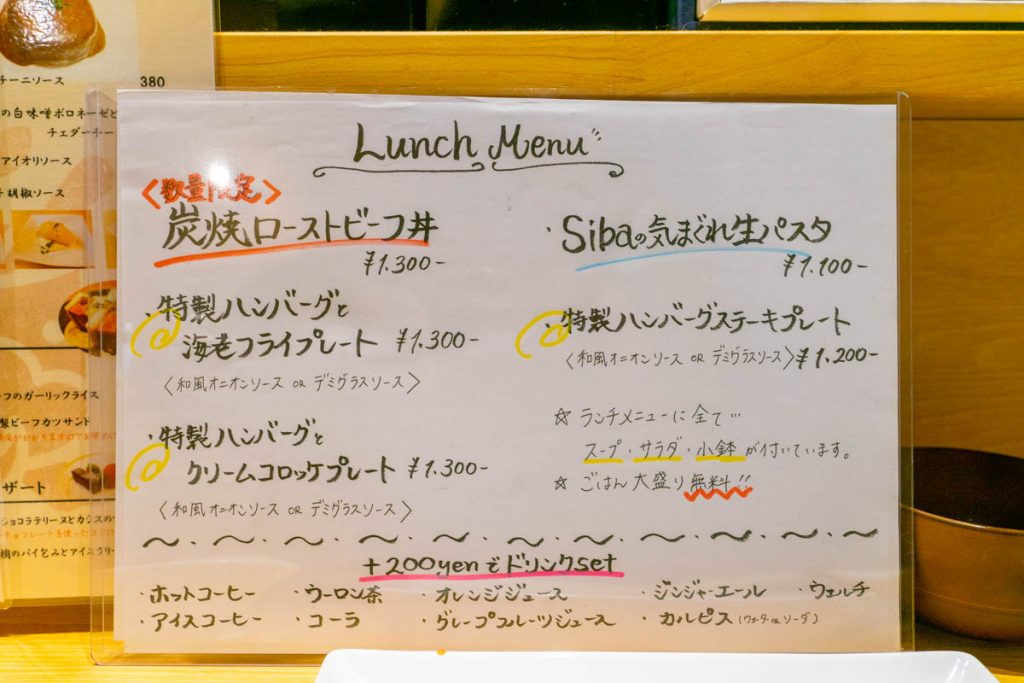 チーニソース 380
の白味噌ボロネーゼと
チェダーチー
アイオリソース
胡椒ソース
フのガーリックライス
製ビーフカツサンド
ザート
ショコラテリーヌとカシスの
のパイ包みとアイスクリー
Lunch Menu
〈数量限定〉
炭焼ローストビーフ丼
¥1.300-
・特製ハンバーグと
海老フライプレート ¥1.300-
〈和風オニオンソース OR デミグラスソース〉
・特製ハンバーグと
クリームコロッケプレート ¥1.300-
〈和風オニオンソース OR デミグラスソース〉
・Sibaの気まぐれ生パスタ
¥1.100-
・特製ハンバーグステーキプレート
〈和風オニオンソース OR デミグラスソース〉¥1.200-
☆ ランチメニューに全て…
スープ・サラダ・小鉢が付いています。
☆ ごはん大盛り無料!!
+200yenでドリンクset
・ホットコーヒー ・ウーロン茶 ・オレンジジュース ・ジンジャーエール ・ウェルチ
・アイスコーヒー ・コーラ ・グレープフルーツジュース ・カルピス(ウォーター or ソーダ)